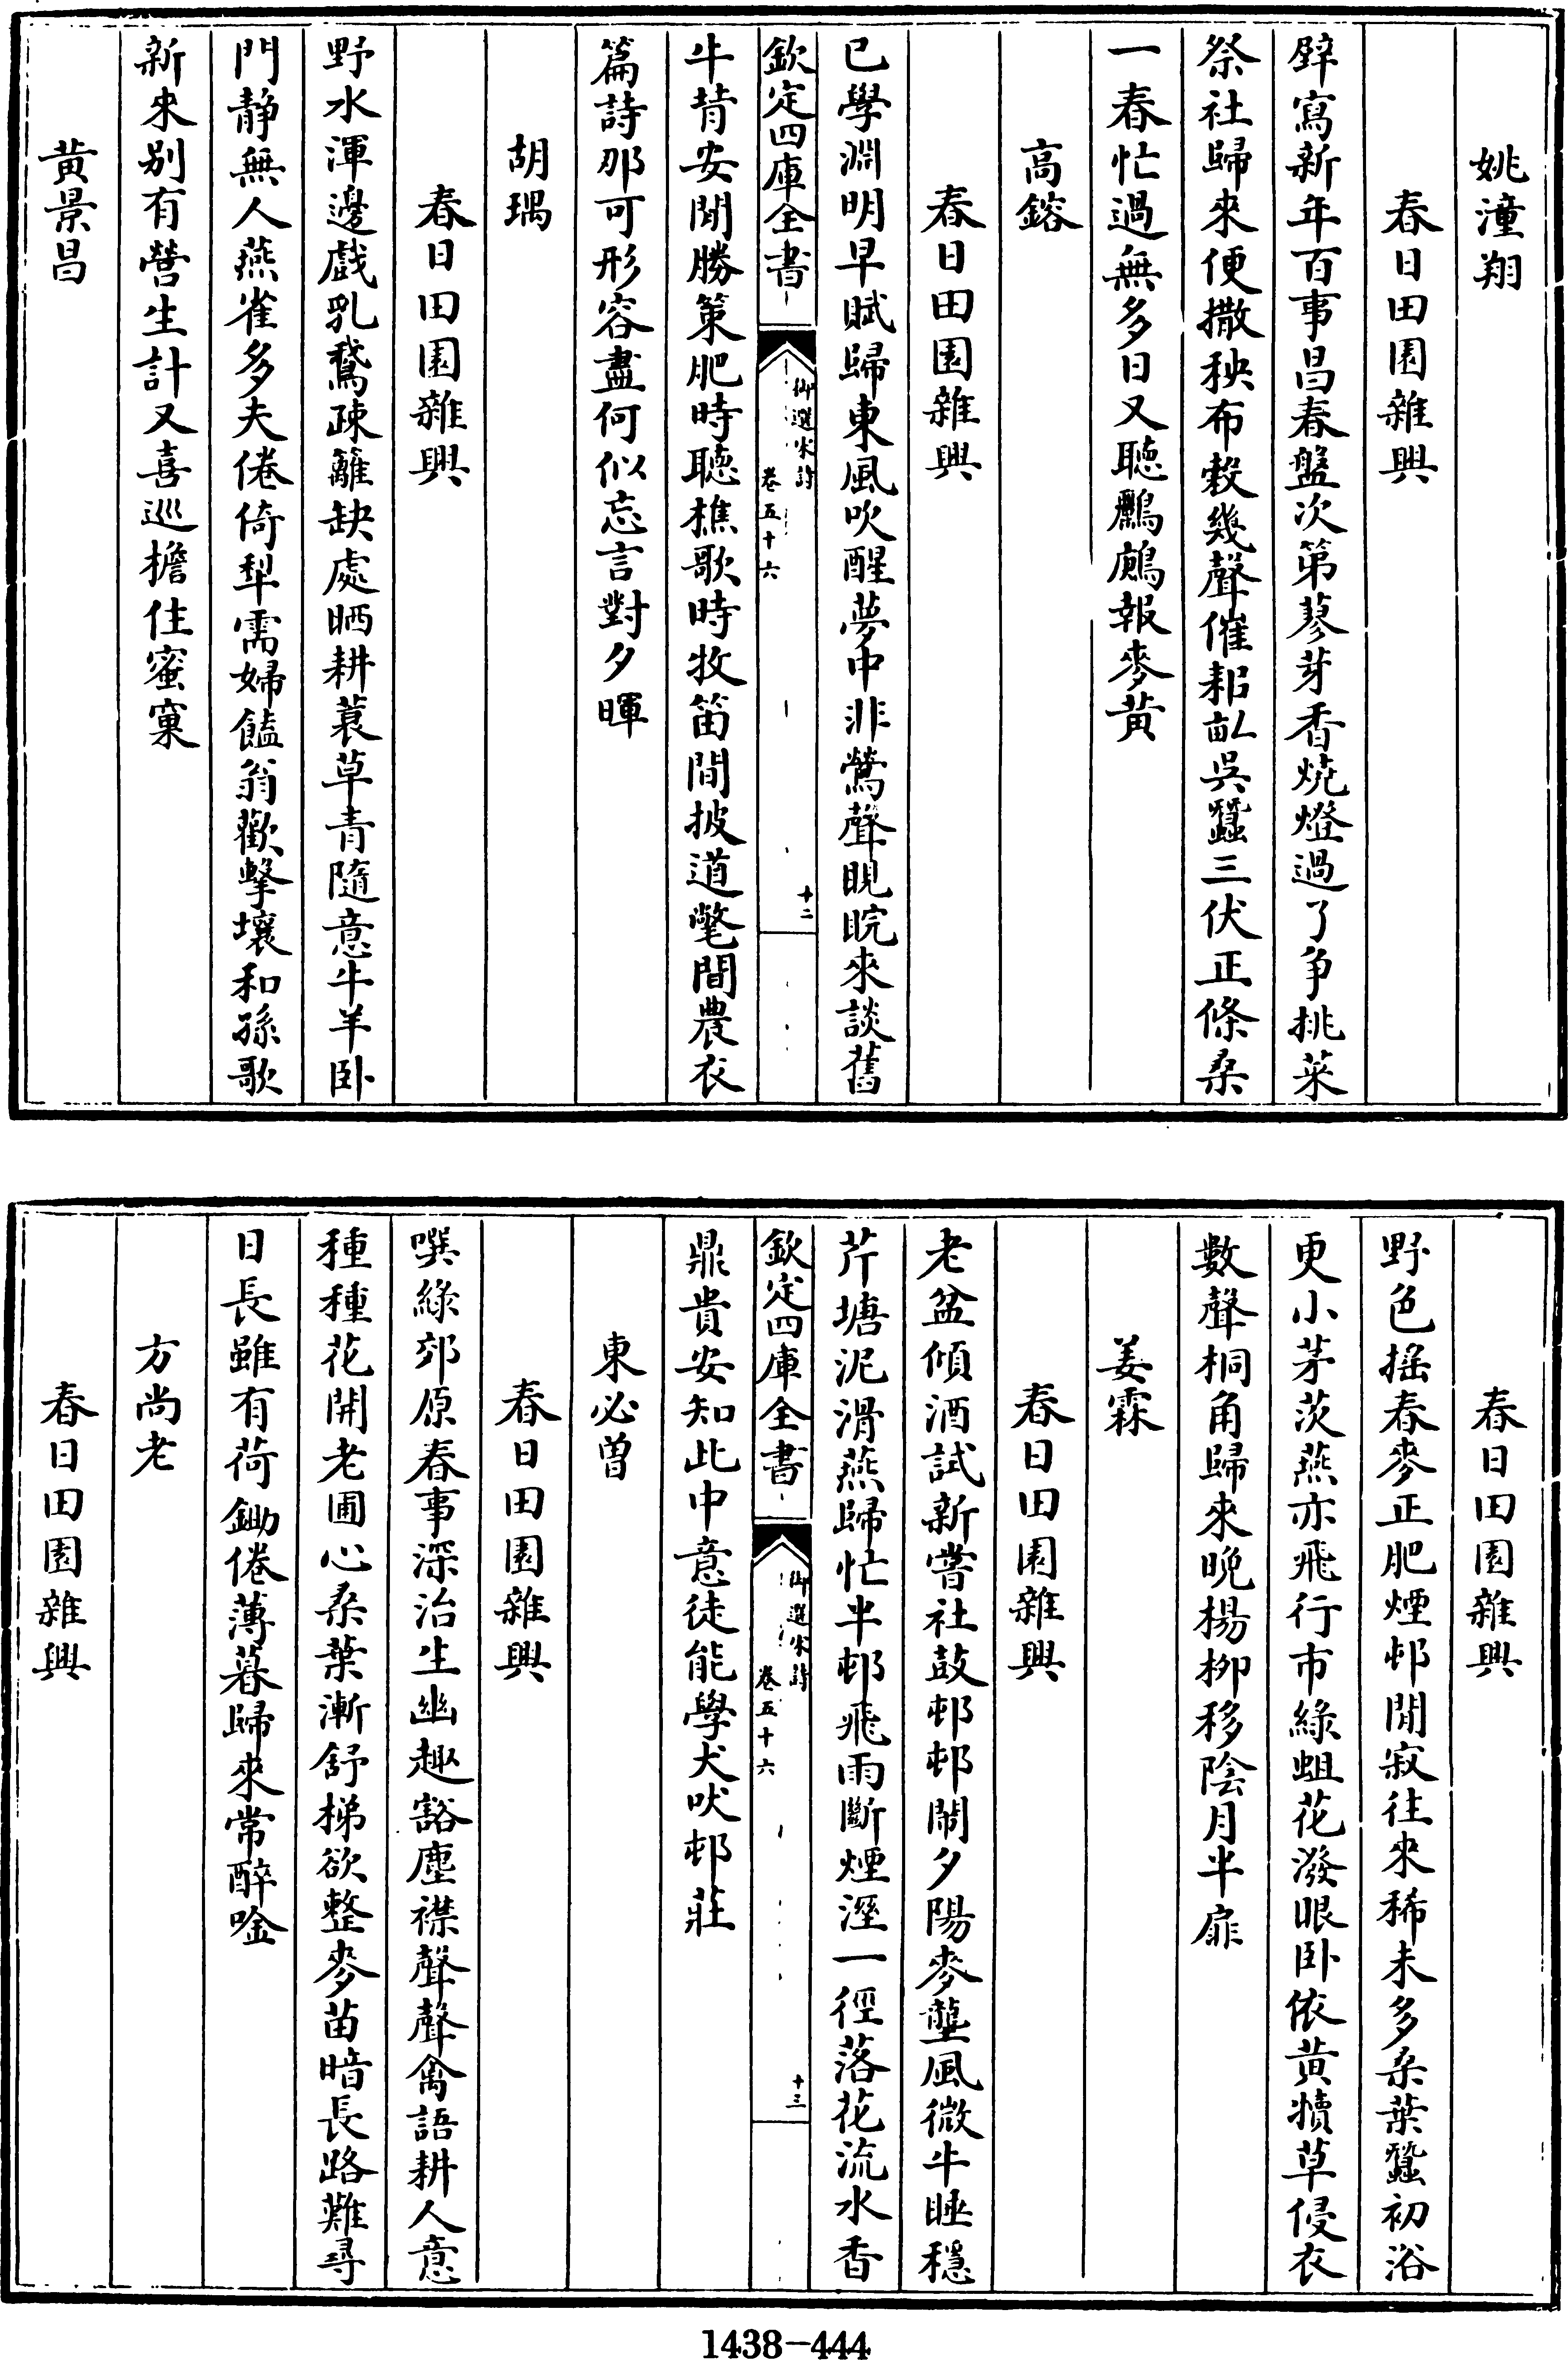 姚潼翔
春日田園雜興
壁寫新年百事昌春盤次第蓼芽香燒燈過了爭挑菜
祭社歸來便撒秧布穀幾聲催耜畝吳蠶三伏正條桑
一春忙過無多日又聽鸝鶊報麥黄
高鎔
春日田園雜興
已學淵明早賦歸東風吹醒夢中非鶯聲睍睆來談舊
欽定四庫全書
御選宋詩
卷五十六
十二
牛背安閒勝策肥時聽樵歌時牧笛間披道氅間農衣
篇詩那可形容盡何似忘言對夕暉
胡瑀
春日田園雜興
野水渾邊戲乳鵞疎籬缺處晒耕蓑草青隨意牛羊卧
門静無人燕雀多夫倦倚犁需婦饁翁歡擊壤和孫歌
新來别有營生計又喜巡擔住蜜窠
黄景昌
春日田園雜興
野色摇春麥正肥煙邨閒寂往來稀未多桑葉蠶初浴
更小茅茨燕亦飛行市綠蛆花潑眼卧依黄犢草侵衣
數聲桐角歸來晚楊柳移陰月半扉
姜霖
春日田園雜興
老盆傾酒試新嘗社鼓邨邨鬧夕陽麥壟風微牛睡穩
芹塘泥滑燕歸忙半邨飛雨斷煙溼一徑落花流水香
欽定四庫全書
御選宋詩
卷五十六
十三
鼎貴安知此中意徒能學犬吠邨莊
東必曾
春日田園雜興
噀綠郊原春事深治生幽趣豁塵襟聲聲禽語耕人意
種種花開老圃心桑葉漸舒梯欲整麥苗暗長路難尋
日長雖有荷鋤倦薄暮歸來常醉唫
方尚老
春日田園雜興
1438-444